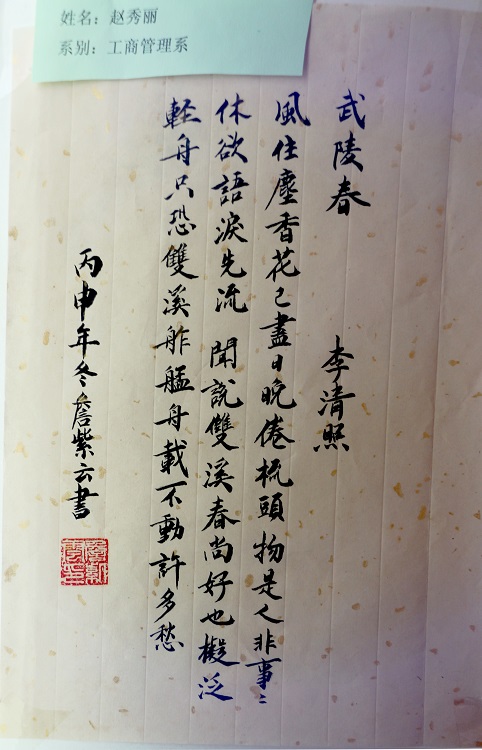 姓名：赵秀丽
系别：工商管理系
武陵春
李清照
風住塵香花已盡日晚倦梳頭物是人非事〻
休欲語淚先流 聞說雙溪春尚好也擬泛
軽舟只恐雙溪舴艋舟載不動許多愁
丙申年冬詹紫云書